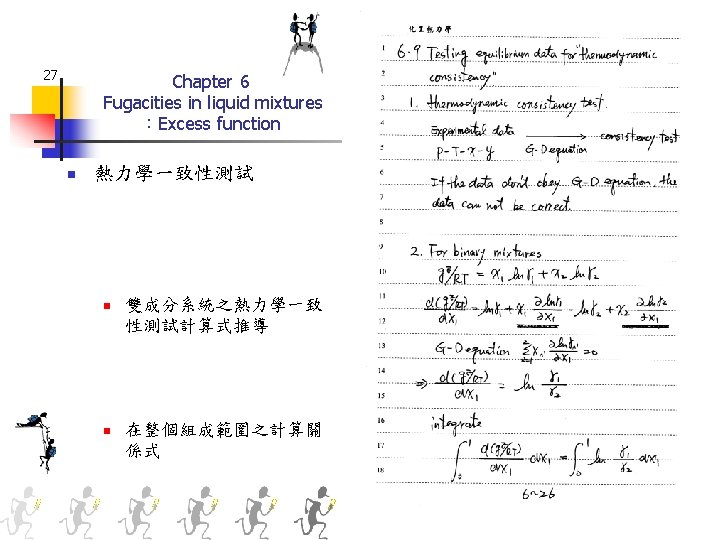 27
Chapter 6
Fugacities in liquid mixtures
：Excess function
熱力學一致性測試
雙成分系統之熱力學一致
性測試計算式推導
在整個組成範圍之計算關
係式
化工熱力學
1 6.9 Testing equilibrium data for "thermodynamic
2 consistency"
3 1. thermodynamic consistency test.
4 Experimental data → consistency test
5 P-T-x-y G-D equation
6 If the data don't obey G-D equation, the
7 data can not be correct.
8
9 2. For binary mixtures
10 g^E/RT = x₁ ln γ₁ + x₂ ln γ₂
11 d(g^E/RT)/dx₁ = ln γ₁ + x₁ ∂lnγ₁/∂x₁ - ln γ₂ + x₂ ∂lnγ₂/∂x₁
12
13 G-D equation Σxᵢ ∂lnγᵢ/∂x₁ = 0
14 ⇒ d(g^E/RT)/dx₁ = ln γ₁/γ₂
15
16 integrate
17 ∫₀¹ d(g^E/RT)/dx₁ dx₁ = ∫₀¹ ln γ₁/γ₂ dx₁
18
6-26